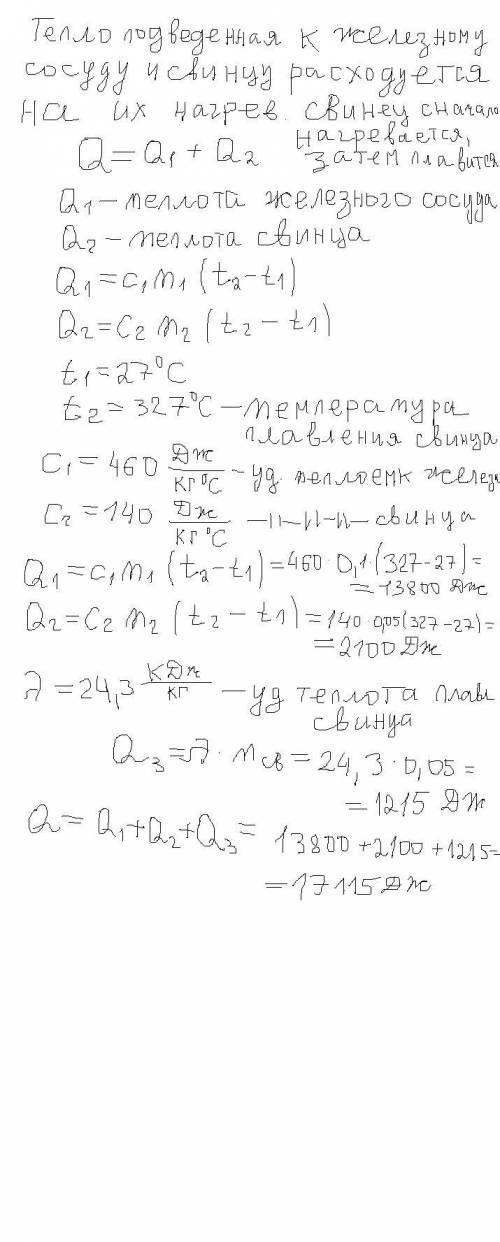 Тепло подведенная к железному
сосуду и свинцу расходуется
на их нагрев. свинец сначала
нагревается,
Q = Q1 + Q2 затем плавится
Q1 – теплота железного сосуда
Q2 – теплота свинца
Q1 = c1 m1 (t2 – t1)
Q2 = c2 m2 (t2 – t1)
t1 = 27°C
t2 = 327°C – температура
плавления свинца
C1 = 460 Дж/кг°C – уд. теплоемк желез
C2 = 140 Дж/кг°C –//–//–//– свинца
Q1 = c1 m1 (t2 – t1) = 460 · 0,1 · (327 – 27) =
= 13800 Дж
Q2 = C2 m2 (t2 – t1) = 140 · 0,05 (327 – 27) =
= 2100 Дж
λ = 24,3 кДж/кг – уд теплота плавл
свинца
Q3 = λ · mсв = 24,3 · 0,05 =
= 1215 Дж
Q = Q1 + Q2 + Q3 = 13800 + 2100 + 1215 =
= 17115 Дж